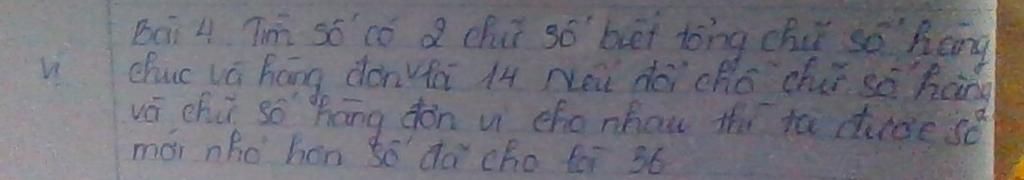 Bài 4 Tìm số có 2 chữ số biết tổng chữ số hàng
chục và hàng đơn vị là 14 Nếu đổi chỗ chữ số hàng
và chữ số hàng đơn vị cho nhau thì ta được số
mới nhỏ hơn số đã cho là 36